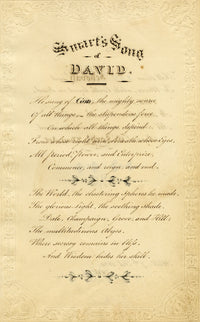 Smart's Song
of
DAVID.
He sung of God, the mighty source
Of all things, the stupendous force
On which all things depend:
From whose right arm, beneath whose eyes,
All period, power, and Enterprize
Commence, and reign, and end.
The World, the clustering Spheres he made,
The glorious light, the soothing shade,
Dale, Champaign, Grove, and Hill,
The multitudinous Abyss,
Where secrecy remains in bliss,
And Wisdom hides her skill.